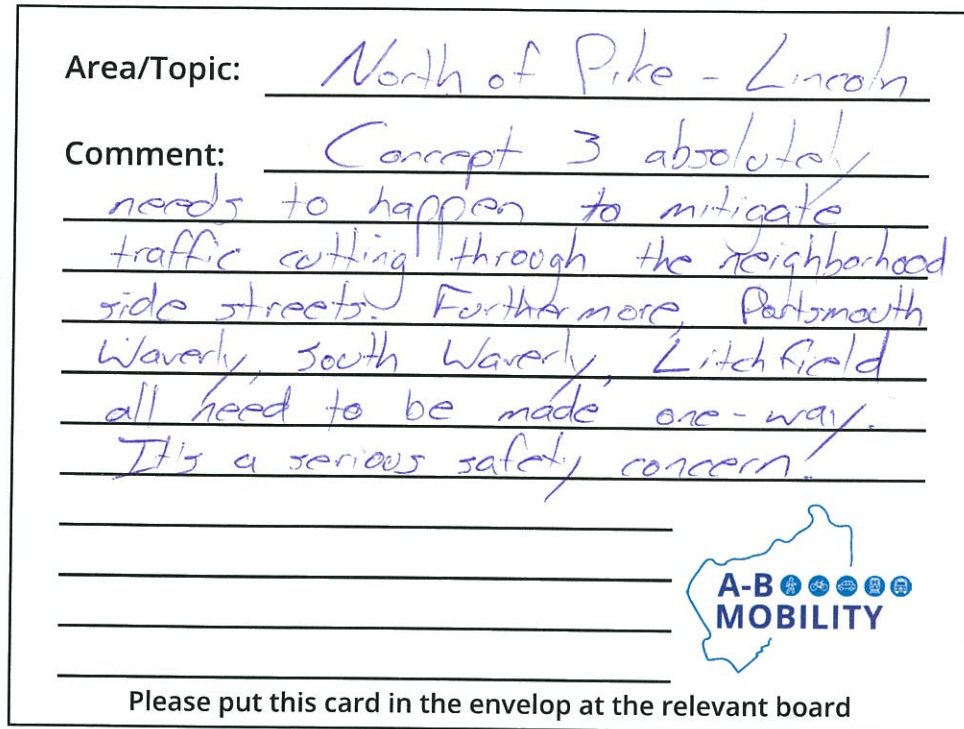 Area/Topic: North of Pike - Lincoln
Comment: Concept 3 absolutely
needs to happen to mitigate
traffic cutting through the neighborhood
side streets. Furthermore, Portsmouth
Waverly, South Waverly, Litchfield
all need to be made one-way.
It's a serious safety concern!
A-B
MOBILITY
Please put this card in the envelop at the relevant board